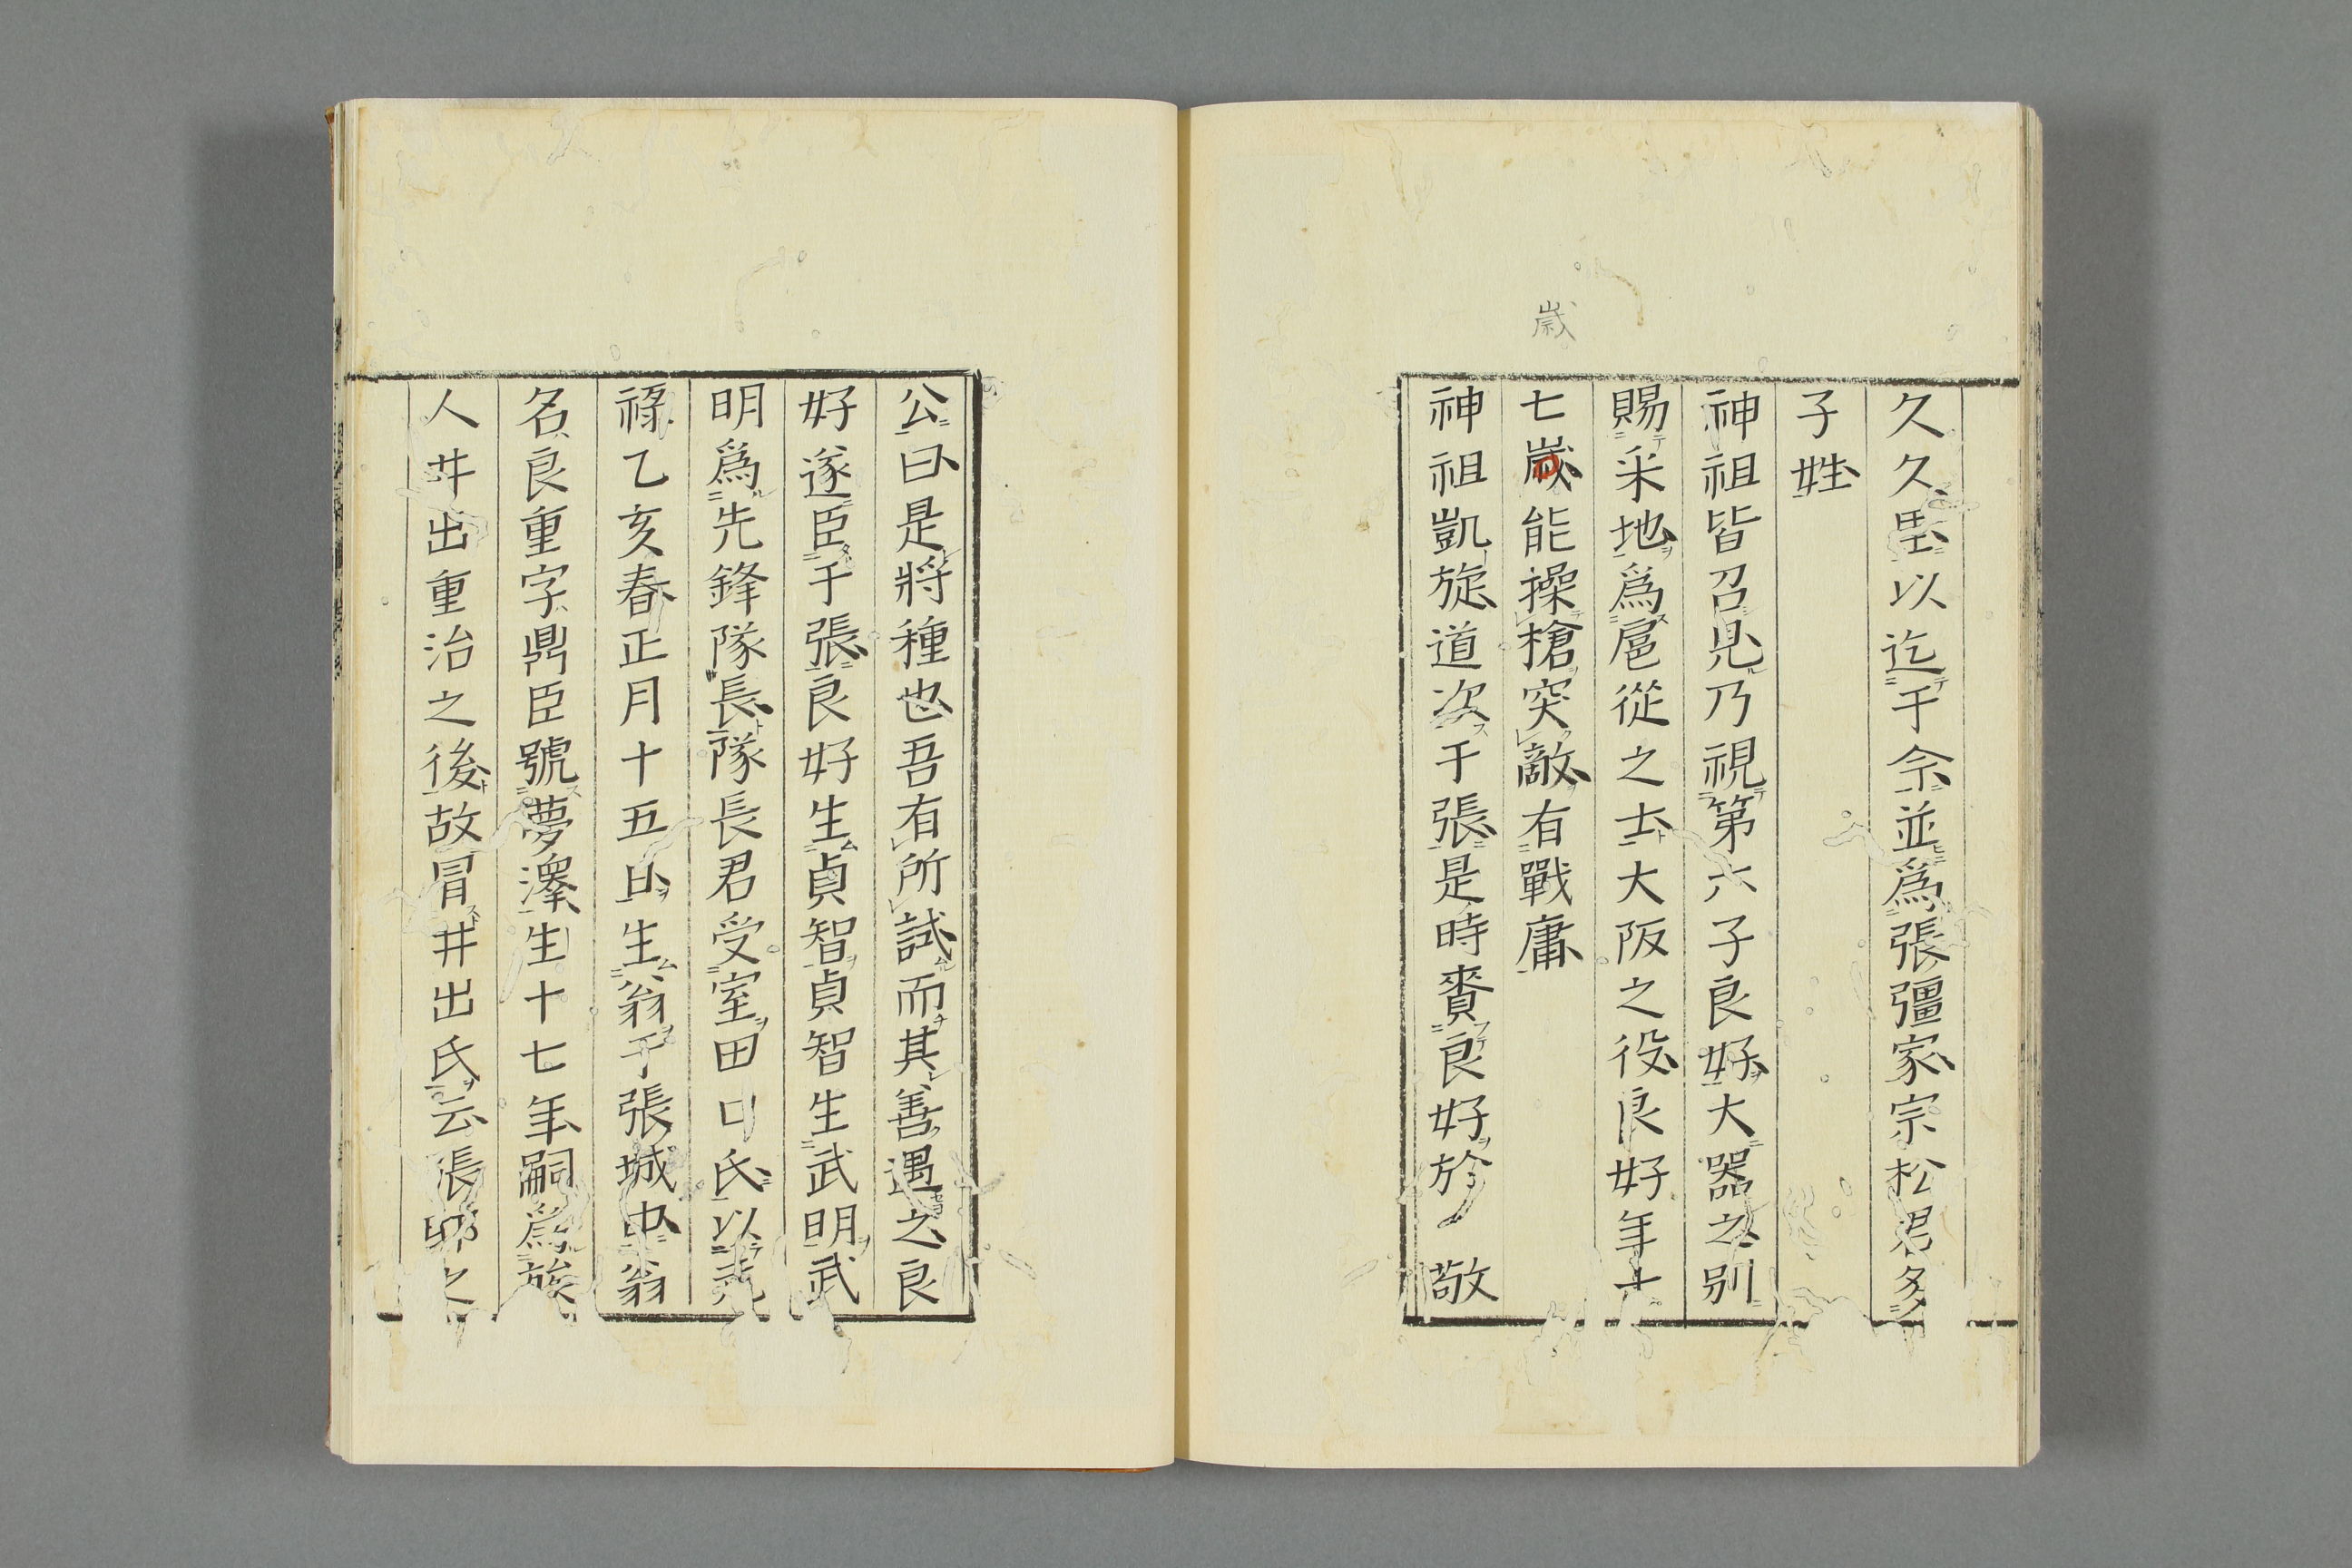 歳
久久里以迄于今並爲張彊家宗松君多
子姓
神祖皆召見乃視第六子良好大器之別
賜采地爲扈從之士大阪之役良好年十
七歳能操槍突敵有戰庸
神祖凱旋道次于張是時賚良好於 敬
公曰是將種也吾有所試而其善遇之良
好遂臣于張良好生貞智貞智生武明武
明爲先鋒隊長隊長君受室田口氏以元
祿乙亥春正月十五日生翁于張城中翁
名良重字鼎臣號夢澤生十七年嗣爲族
人井出重治之後故冒井出氏云張邸之